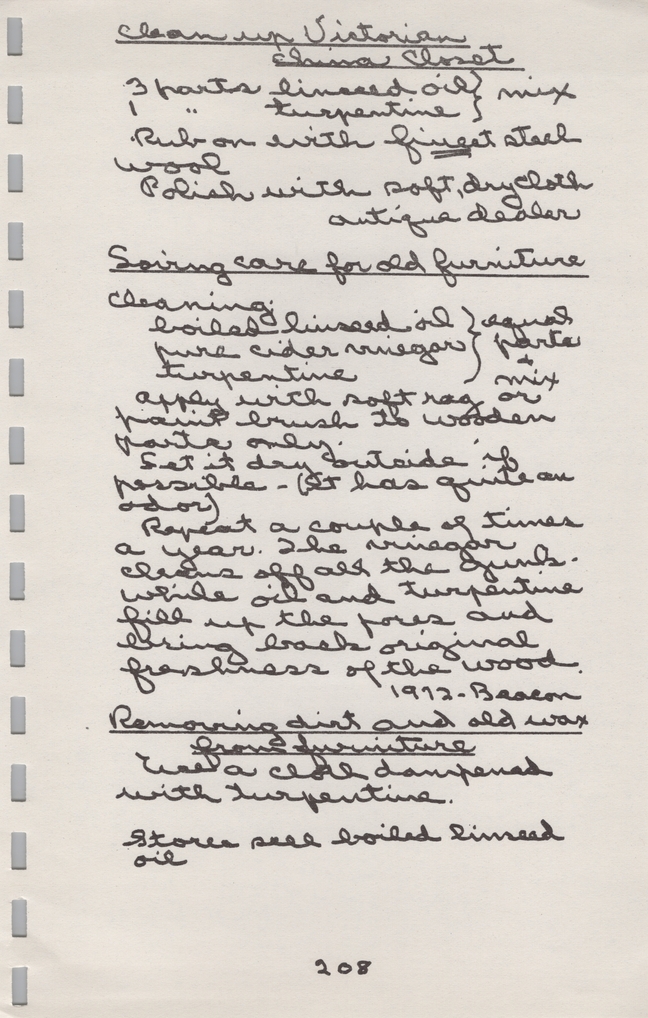 Clean up Victorian
China Closet
3 parts linseed oil } mix
1 " turpentine }
Rub on with finest steel
wool
Polish with soft, dry cloth
antique dealer
Spring care for old furniture
Cleaning
boiled linseed oil } equal
pure cider vinegar } parts
turpentine } + mix
apply with soft rag or
paint brush to wooden
parts only.
Let it dry outside if
possible - (It has quite an
odor)
Repeat a couple of times
a year. The vinegar
cleans off all the gunk.
while oil and turpentine
fill up the pores and
bring back original
freshness of the wood.
1972 - Beacon
Removing dirt and old wax
from furniture
Use a cloth dampened
with turpentine.
Stores sell boiled linseed
oil
208